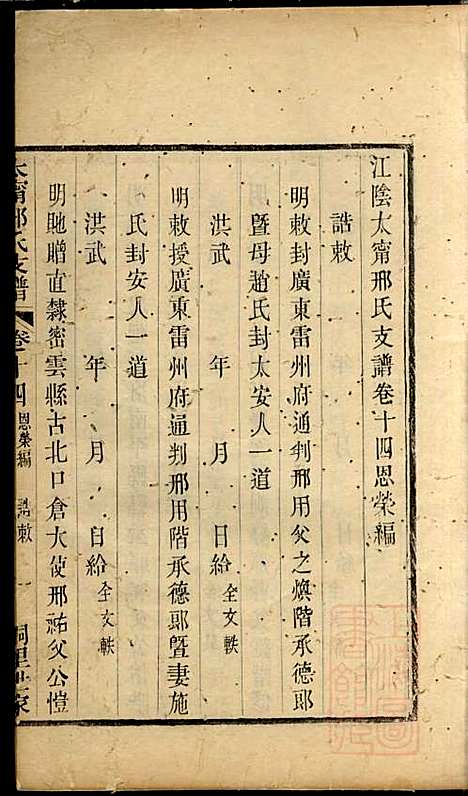 江陰太甯邢氏支譜卷十四恩榮編
誥敕
明敕封廣東雷州府通判邢用父之煥階承德郎
明暨母趙氏封太安人一道
洪武　年　月　日給全文軼
明敕授廣東雷州府通判邢用階承德郎暨妻施
明氏封安人一道
洪武　年　月　日給全文軼
明貤贈直隸密雲縣古北口倉大使邢祐父公愷
太甯邢氏支譜　卷十四　恩榮編　誥敕　一